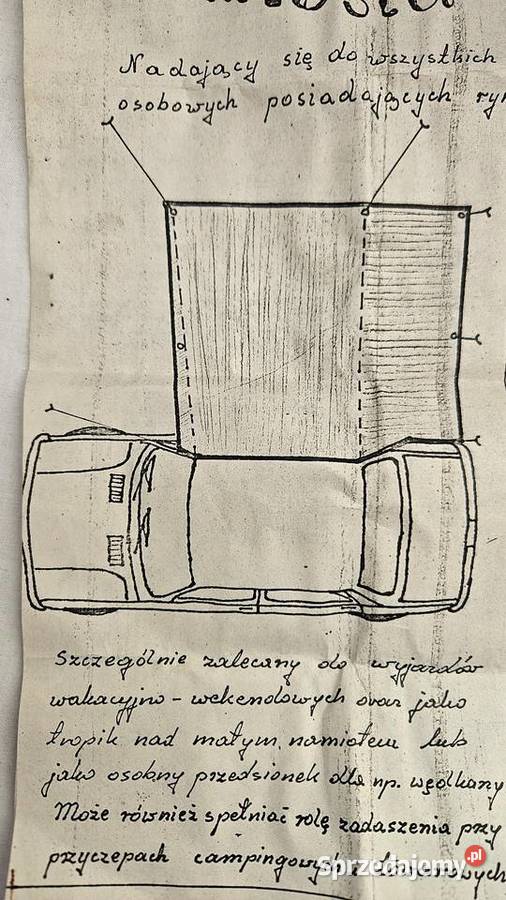 Nadający się do wszystkich
osobowych posiadających ryn
Szczególnie zalecany do wyjazdów
wakacyjno - wekendowych oraz jako
tropik nad małym namiotem lub
jako osobny przedsionek dla np. wędkany
Może również spełniać rolę zadaszenia przy
przyczepach campingowych i towarowych
Sprzedajemy.pl